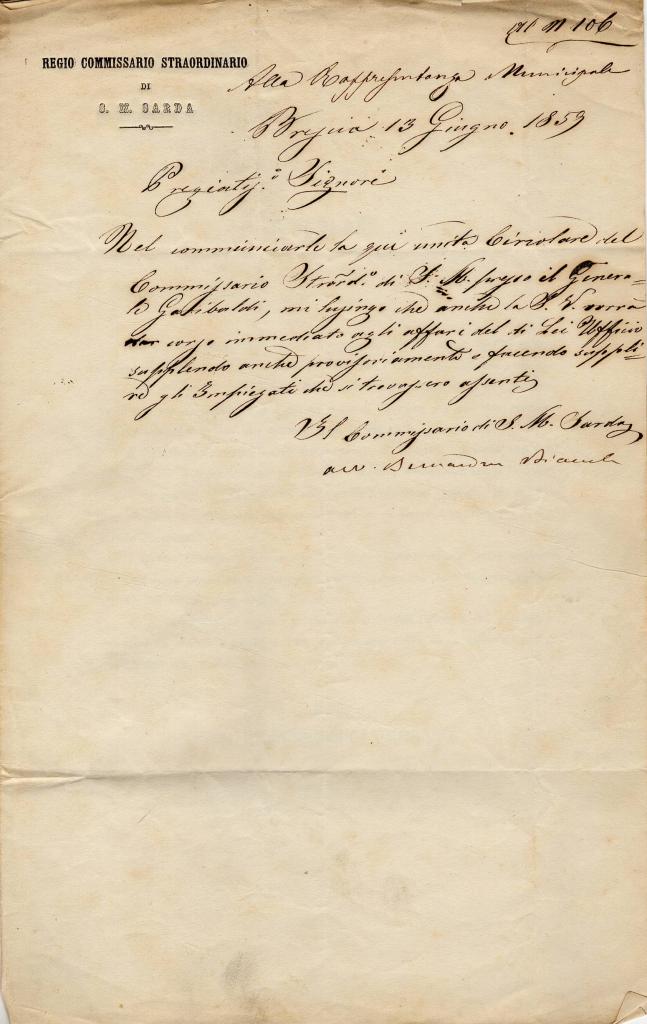 al N 106
REGIO COMMISSARIO STRAORDINARIO
DI
S. M. SARDA
Alla Rappresentanza Municipale
Brescia 13 Giugno. 1859
Pregiatiss.i Signori
Nel communicarle la quì unita Circolare del
Commissario Straord.o di S. M. presso il Genera-
le Garibaldi, mi lusingo che anche la S. V. vorrà
dar corso immediato agli affari del di Lei Ufficio
supplendo anche provisoriamente o facendo suppli-
re gli Impiegati che si trovassero assenti
Il Commissario di S. M. Sarda
avv. Bernardino